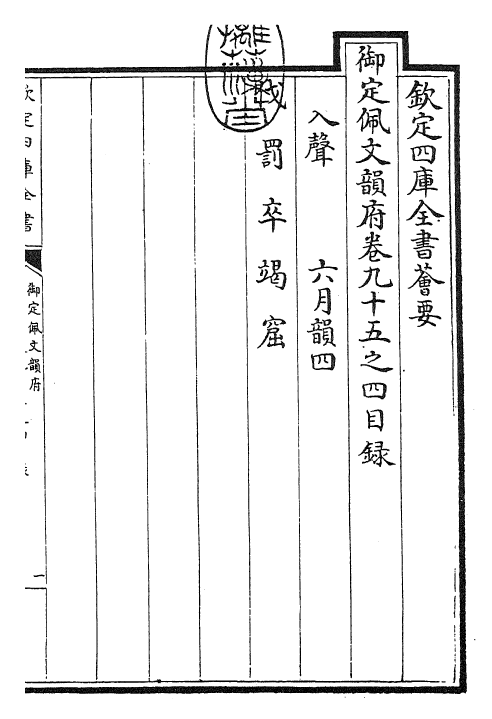 欽定四庫全書薈要
御定佩文韻府卷九十五之四目録
入聲 六月韻四
伐 罰 卒 竭 窟
欽定四庫全書
御定佩文韻府
一